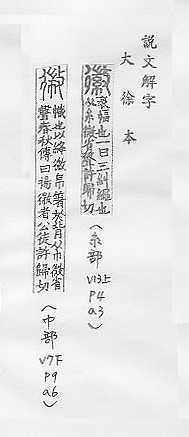 說文解字
大徐本
徽
衺幅也一曰三糾繩也
从糸微省聲許歸切
(糸部 V13上 P4 a3)
幑
幟也以絳徽帛箸於背从巾微省
聲春秋傳曰揚徽者公徒許歸切
(巾部 V7下 P9 a6)